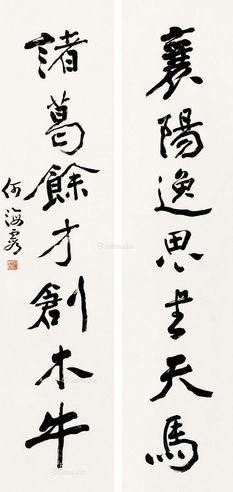 襄陽逸思書天馬
諸葛餘才創木牛
何海霞